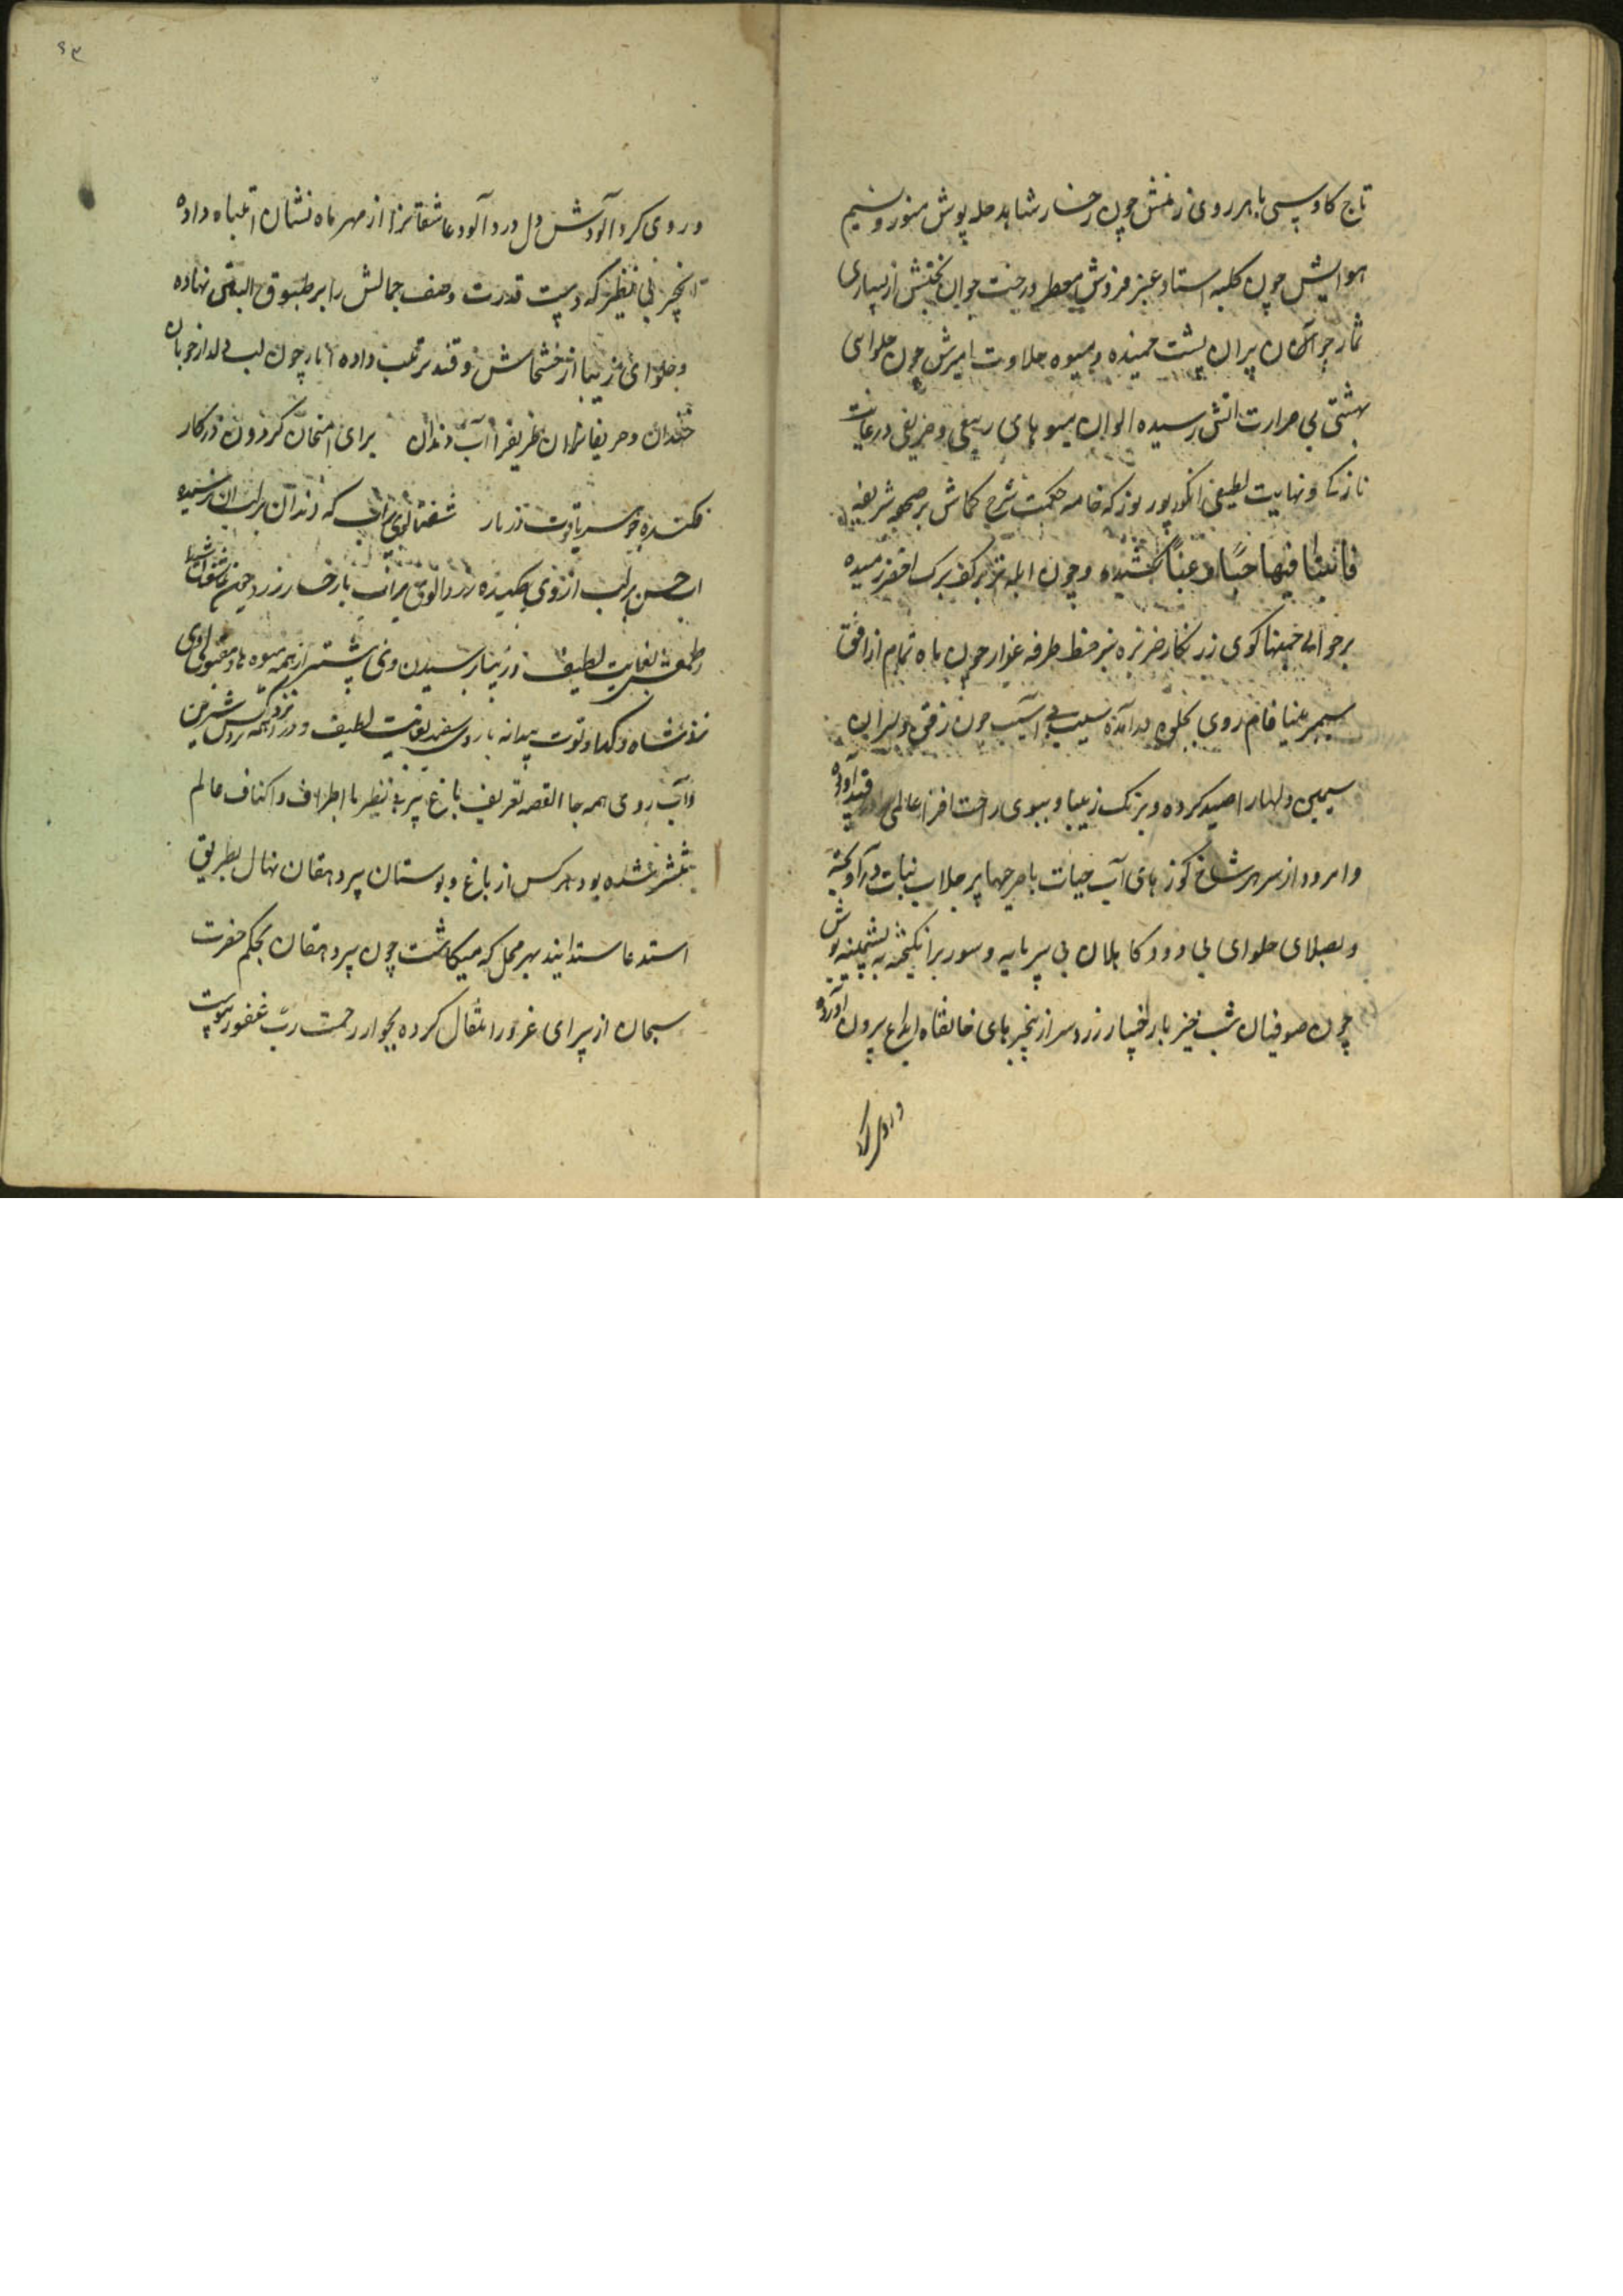 تاج کاوسی با هر روی زمینش چون رخسار شاهد حله پوش منور و نسیم
هوایش چون کلبه استاد عنبر فروش معطر درخت جوان بختش از بسیاری
ثمار چون پیران پشت خمیده و میوه حلاوت امیزش چون حلوای
بهشتی بی حرارت اتش رسیده الوان میوهای ربیعی و خریفی در غایت
نازکی و نهایت لطیفی انگور پور نور که خامه حکمت شرح کماش بر صحیفه شریفه
فانبتنا فیها حبا و عنبا کشیده و چون ابله تر بر کف برک اخضر رمیده
بر حوالی کوی زر نکار خربزه سبز خط طرفه عذار چون ماه تمام از افق
سپهر مینا فام روی بجلوه در آمده سیب بی آسیب چون زقن دلبران
سیمین دلها را صید کرده و برنک زیبا و ببوی راحت افزا عالمی را در قید آورده
و امرود از سر هر شاخ کوزهای آب حیات با پر جلاب نبات در آویخته
و بصلای حلوای بی دود کاهلان بی سرمایه و سود بر انکیخته به پشمینه پوش
چون صوفیان شب خیز با رخسار زرد سر از پنجرهای خانقاه ابداع بیرون آورده
و روی کرد
۶۳
و روی کرد آلودش دل درد آلود عاشقانرا از مهر ماه نشان انتباه داده
انجیر بی نظیر که دست قدرت وصف جمالش را بر طبق و التین نهاده
و حلوای زیبا از خشخاش و قند ترتیب داده انار چون لب دلدار خوبان
خندان و حریفانرا ظریفرا آب دندان برای امتحان کردون در کار
فکنده یاقوت در بار شفتالوی سیراب که دندان بر لب ان نرسیده
اب حسن بر لب از وی چکیده زردالوی میراب با رخسار زرد چون عاشقان
و طعمش بغایت لطیف و در رسیدن وی پیشتر از همه میوه ها و مقبول
نزد شاه و کدا و توت بیدانه با روی سفید بغایت لطیف و نزد همه کس شیرین
و آب روی همه جا القصه تعریف باغ پیر بی نظیر با اطراف و اکناف عالم
منتشر شده بود هر کس از باغ و بوستان پیر دهقان نهال بطریق
استدعا ستدایند بهر محل که میکاشت چون پیر دهقان بحکم حضرت
سبحان از سرای غرور انتقال کرده بجوار رحمت رب غفور پیوست